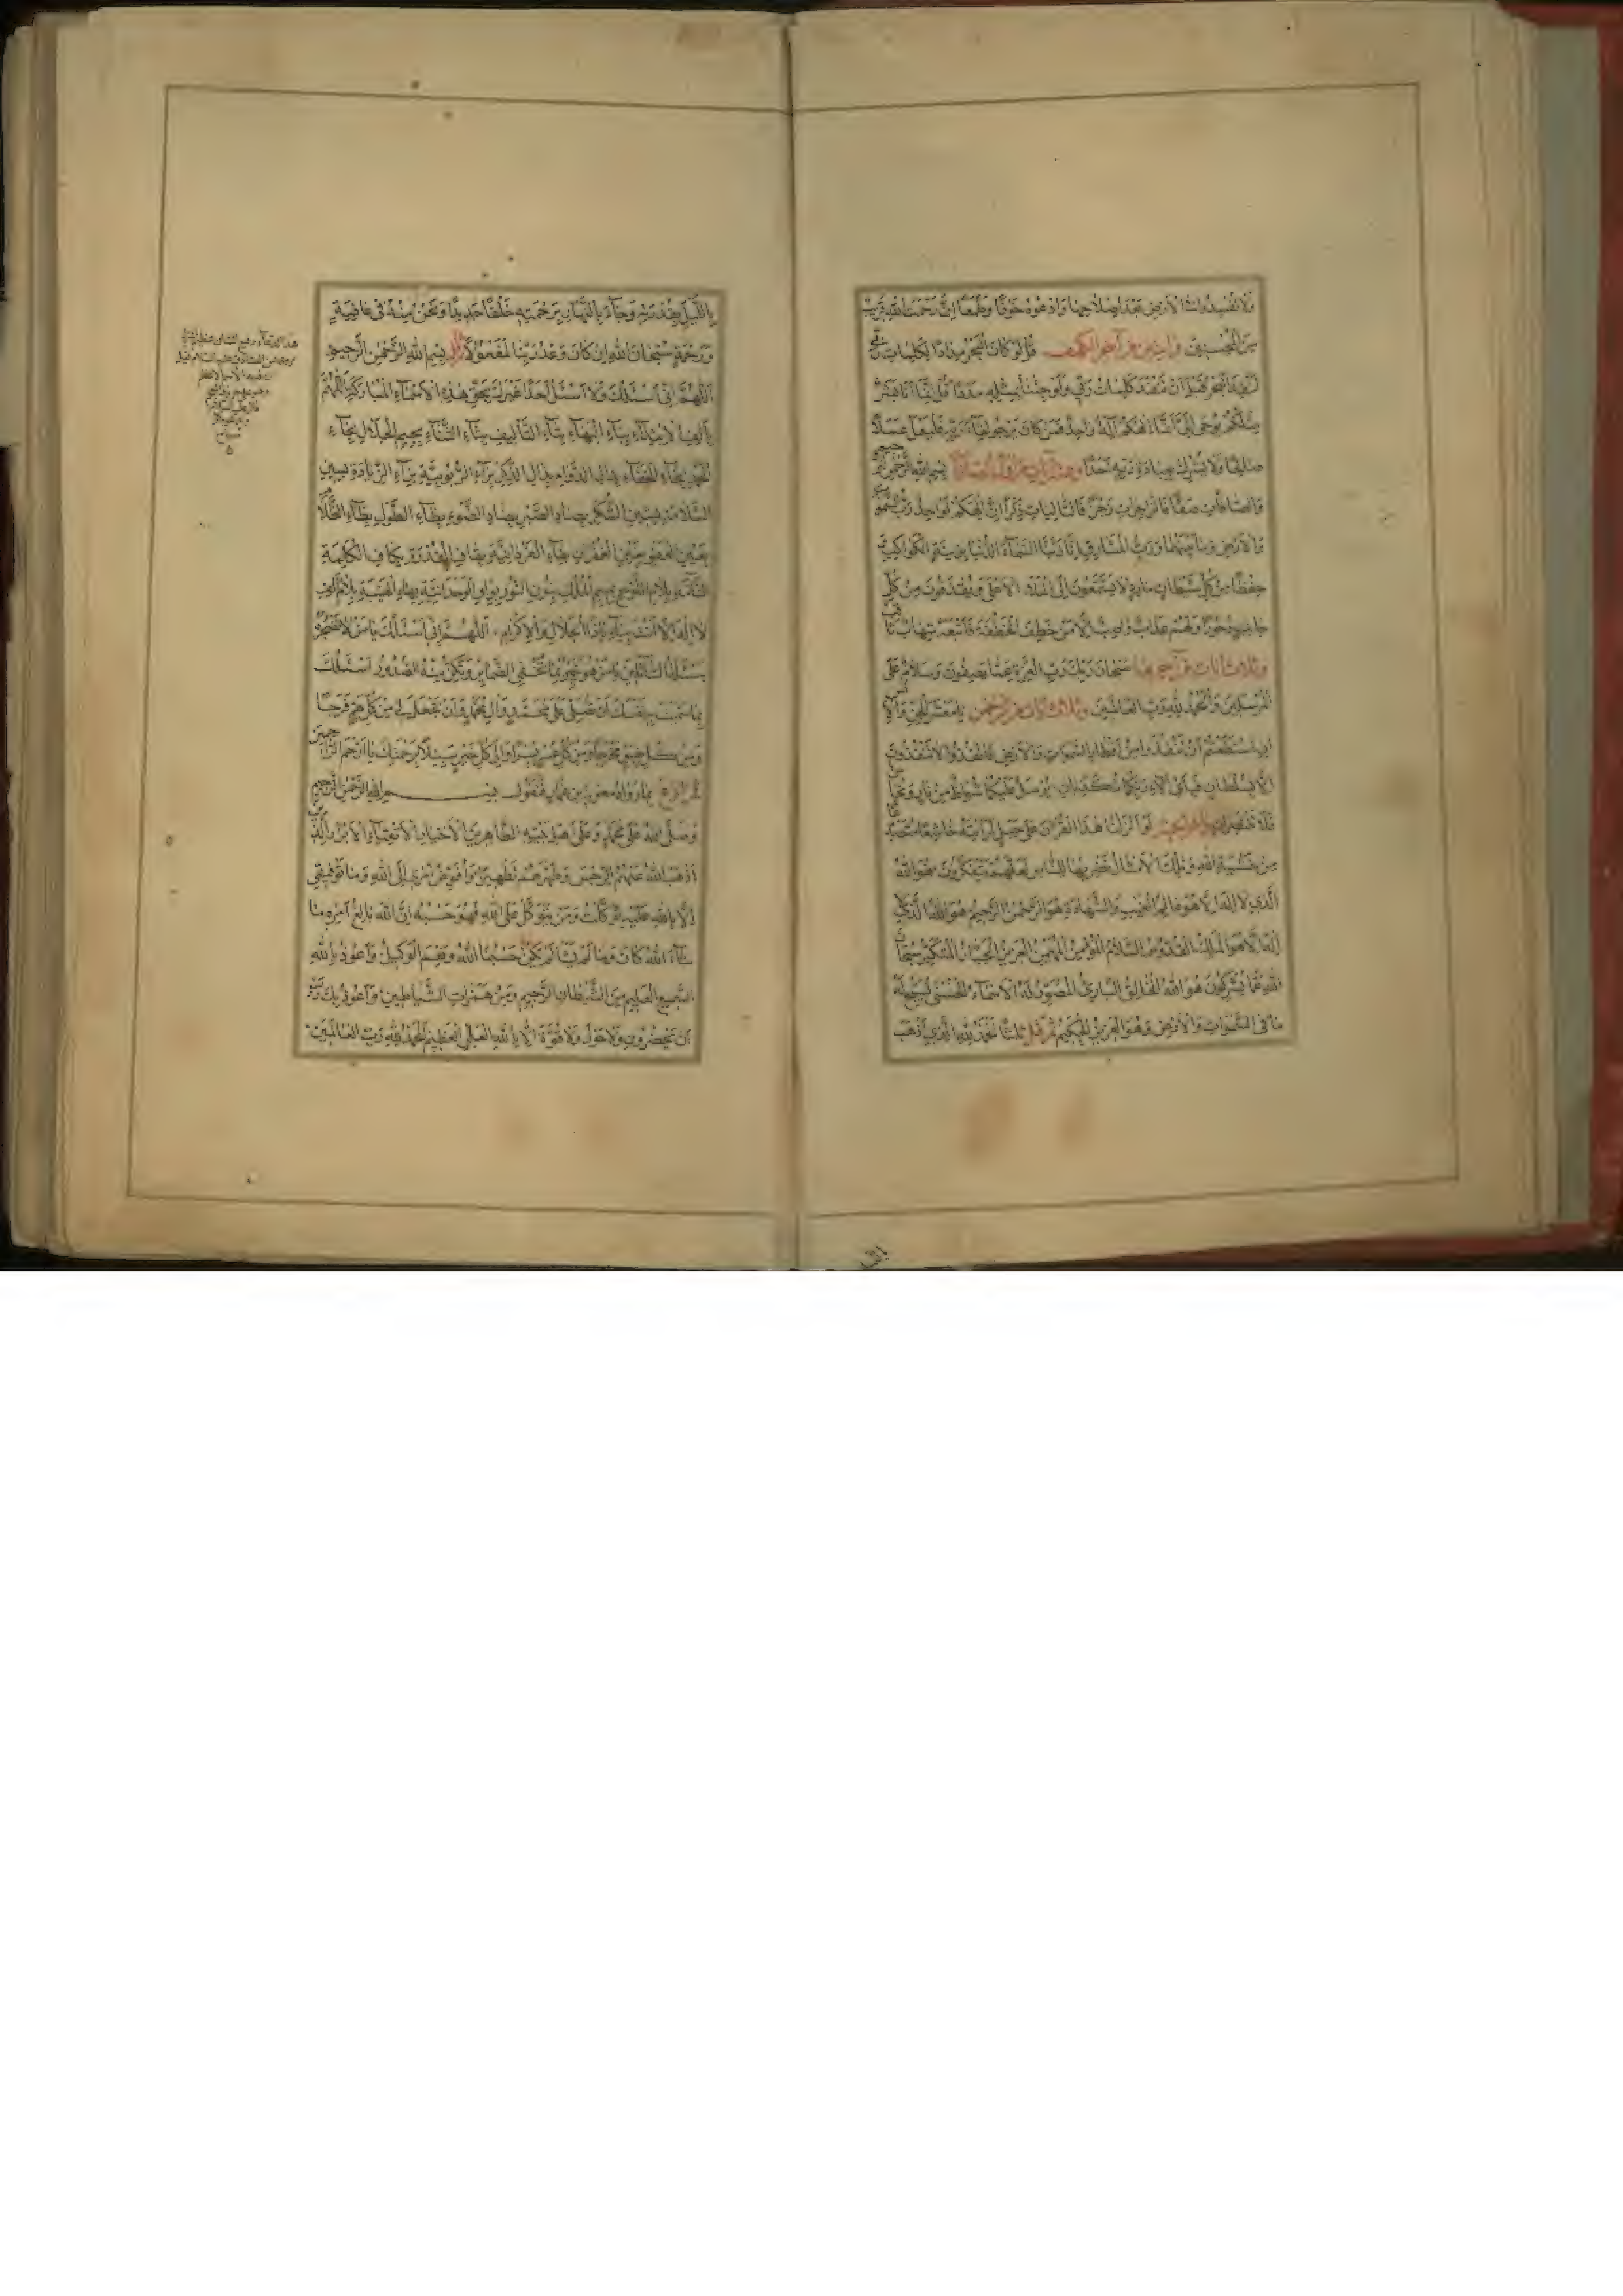 وَلَا تُفْسِدُوا فِي الْأَرْضِ بَعْدَ إِصْلَاحِهَا وَادْعُوهُ خَوْفًا وَطَمَعًا إِنَّ رَحْمَتَ اللَّهِ قَرِيبٌ
مِنَ الْمُحْسِنِينَ وآيتين من آخر الكهف قُلْ لَوْ كَانَ الْبَحْرُ مِدَادًا لِكَلِمَاتِ رَبِّي
لَنَفِدَ الْبَحْرُ قَبْلَ أَنْ تَنْفَدَ كَلِمَاتُ رَبِّي وَلَوْ جِئْنَا بِمِثْلِهِ مَدَدًا قُلْ إِنَّمَا أَنَا بَشَرٌ
مِثْلُكُمْ يُوحَى إِلَيَّ أَنَّمَا إِلَهُكُمْ إِلَهٌ وَاحِدٌ فَمَنْ كَانَ يَرْجُو لِقَاءَ رَبِّهِ فَلْيَعْمَلْ عَمَلًا
صَالِحًا وَلَا يُشْرِكْ بِعِبَادَةِ رَبِّهِ أَحَدًا وعشر آيات من أول الصافات بسم الله الرحمن الرحيم
وَالصَّافَّاتِ صَفًّا فَالزَّاجِرَاتِ زَجْرًا فَالتَّالِيَاتِ ذِكْرًا إِنَّ إِلَهَكُمْ لَوَاحِدٌ رَبُّ السَّمَوَاتِ
وَالْأَرْضِ وَمَا بَيْنَهُمَا وَرَبُّ الْمَشَارِقِ إِنَّا زَيَّنَّا السَّمَاءَ الدُّنْيَا بِزِينَةٍ الْكَوَاكِبِ وَ
حِفْظًا مِنْ كُلِّ شَيْطَانٍ مَارِدٍ لَا يَسَّمَّعُونَ إِلَى الْمَلَإِ الْأَعْلَى وَيُقْذَفُونَ مِنْ كُلِّ
جَانِبٍ دُحُورًا وَلَهُمْ عَذَابٌ وَاصِبٌ إِلَّا مَنْ خَطِفَ الْخَطْفَةَ فَأَتْبَعَهُ شِهَابٌ ثَاقِبٌ
وثلاث آيات من آخرها سُبْحَانَ رَبِّكَ رَبِّ الْعِزَّةِ عَمَّا يَصِفُونَ وَسَلَامٌ عَلَى
الْمُرْسَلِينَ وَالْحَمْدُ لِلَّهِ رَبِّ الْعَالَمِينَ وثلاث آيات من الرحمن يَا مَعْشَرَ الْجِنِّ وَالْإِنْسِ
إِنِ اسْتَطَعْتُمْ أَنْ تَنْفُذُوا مِنْ أَقْطَارِ السَّمَوَاتِ وَالْأَرْضِ فَانْفُذُوا لَا تَنْفُذُونَ
إِلَّا بِسُلْطَانٍ فَبِأَيِّ آلَاءِ رَبِّكُمَا تُكَذِّبَانِ يُرْسَلُ عَلَيْكُمَا شُوَاظٌ مِنْ نَارٍ وَنُحَاسٌ
فَلَا تَنْتَصِرَانِ وآخر الحشر لَوْ أَنْزَلْنَا هَذَا الْقُرْآنَ عَلَى جَبَلٍ لَرَأَيْتَهُ خَاشِعًا مُتَصَدِّعًا
مِنْ خَشْيَةِ اللَّهِ وَتِلْكَ الْأَمْثَالُ نَضْرِبُهَا لِلنَّاسِ لَعَلَّهُمْ يَتَفَكَّرُونَ هُوَ اللَّهُ
الَّذِي لَا إِلَهَ إِلَّا هُوَ عَالِمُ الْغَيْبِ وَالشَّهَادَةِ هُوَ الرَّحْمَنُ الرَّحِيمُ هُوَ اللَّهُ الَّذِي لَا
إِلَهَ إِلَّا هُوَ الْمَلِكُ الْقُدُّوسُ السَّلَامُ الْمُؤْمِنُ الْمُهَيْمِنُ الْعَزِيزُ الْجَبَّارُ الْمُتَكَبِّرُ سُبْحَانَ
اللَّهِ عَمَّا يُشْرِكُونَ هُوَ اللَّهُ الْخَالِقُ الْبَارِئُ الْمُصَوِّرُ لَهُ الْأَسْمَاءُ الْحُسْنَى يُسَبِّحُ لَهُ
مَا فِي السَّمَوَاتِ وَالْأَرْضِ وَهُوَ الْعَزِيزُ الْحَكِيمُ ثم قل ثلثا الْحَمْدُ لِلَّهِ الَّذِي أَذْهَبَ
بِاللَّيْلِ بِقُدْرَتِهِ وَجَاءَ بِالنَّهَارِ بِرَحْمَتِهِ خَلْقًا جَدِيدًا وَنَحْنُ مِنْهُ فِي عَافِيَةٍ
وَرَحْمَةٍ سُبْحَانَ اللَّهِ إِنْ كَانَ وَعْدُ رَبِّنَا لَمَفْعُولًا بِسْمِ اللَّهِ الرَّحْمَنِ الرَّحِيمِ
اللَّهُمَّ إِنِّي أَسْئَلُكَ وَلَا أَسْئَلُ أَحَدًا غَيْرَكَ بِحَقِّ هَذِهِ الْأَسْمَاءِ الْمُبَارَكَةِ اللَّهُمَّ
بِأَلِفِ الْإِبْتِدَاءِ بِبَاءِ الْبَهَاءِ بِتَاءِ التَّأْلِيفِ بِثَاءِ الثَّنَاءِ بِجِيمِ الْجَلَالِ بِحَاءِ
الْحَمْدِ بِخَاءِ الْخَفَاءِ بِدَالِ الدَّوَامِ بِذَالِ الذِّكْرِ بِرَاءِ الرُّبُوبِيَّةِ بِزَاءِ الزِّيَادَةِ بِسِينِ
السَّلَامَةِ بِشِينِ الشُّكْرِ بِصَادِ الصَّبْرِ بِضَادِ الضَّوْءِ بِطَاءِ الطَّوْلِ بِظَاءِ الظَّلَامِ
بِعَيْنِ الْعَفْوِ بِغَيْنِ الْغُفْرَانِ بِفَاءِ الْفَرْدَانِيَّةِ بِقَافِ الْقُدْرَةِ بِكَافِ الْكَلِمَةِ
التَّامَّةِ بِلَامِ اللَّوْحِ بِمِيمِ الْمُلْكِ بِنُونِ النُّورِ بِوَاوِ الْوَحْدَانِيَّةِ بِهَاءِ الْهَيْبَةِ بِلَامِ أَلِفِ
لَا إِلَهَ إِلَّا أَنْتَ بِيَاءِ يَا ذَا الْجَلَالِ وَالْإِكْرَامِ اللَّهُمَّ إِنِّي أَسْئَلُكَ يَا مَنْ لَا تُضْجِرُهُ
مَسْئَلَةُ السَّائِلِينَ يَا مَنْ هُوَ خَبِيرٌ بِمَا تُخْفِي الضَّمَائِرُ وَتُكِنُّ مِنْهُ الصُّدُورُ أَسْئَلُكَ
بِمَا سَمَّيْتَ بِهِ نَفْسَكَ أَنْ تُصَلِّيَ عَلَى مُحَمَّدٍ وَآلِ مُحَمَّدٍ وَأَنْ تَجْعَلَ لِي مِنْ كُلِّ هَمٍّ فَرَجًا
وَمِنْ كُلِّ ضِيقٍ مَخْرَجًا وَمِنْ كُلِّ عُسْرٍ يُسْرًا وَإِلَى كُلِّ خَيْرٍ سَبِيلًا بِرَحْمَتِكَ يَا أَرْحَمَ الرَّاحِمِينَ
بما رواه معوية بن عمار فتقول بسم الله الرحمن الرحيم
وَصَلَّى اللَّهُ عَلَى مُحَمَّدٍ وَعَلَى أَهْلِ بَيْتِهِ الطَّاهِرِينَ الْأَخْيَارِ الْأَتْقِيَاءِ الْأَبْرَارِ الَّذِينَ
أَذْهَبَ اللَّهُ عَنْهُمُ الرِّجْسَ وَطَهَّرَهُمْ تَطْهِيرًا وَأُفَوِّضُ أَمْرِي إِلَى اللَّهِ وَمَا تَوْفِيقِي
إِلَّا بِاللَّهِ عَلَيْهِ تَوَكَّلْتُ وَمَنْ يَتَوَكَّلْ عَلَى اللَّهِ فَهُوَ حَسْبُهُ إِنَّ اللَّهَ بَالِغُ أَمْرِهِ مَا
شَاءَ اللَّهُ كَانَ وَمَا لَمْ يَشَأْ لَمْ يَكُنْ حَسْبُنَا اللَّهُ وَنِعْمَ الْوَكِيلُ وَأَعُوذُ بِاللَّهِ
السَّمِيعِ الْعَلِيمِ مِنَ الشَّيْطَانِ الرَّجِيمِ وَمِنْ هَمَزَاتِ الشَّيَاطِينِ وَأَعُوذُ بِكَ رَبِّ
أَنْ يَحْضُرُونِ وَلَا حَوْلَ وَلَا قُوَّةَ إِلَّا بِاللَّهِ الْعَلِيِّ الْعَظِيمِ الْحَمْدُ لِلَّهِ رَبِّ الْعَالَمِينَ
هذا الدعاء رفيع الشان عظيم المنزلة